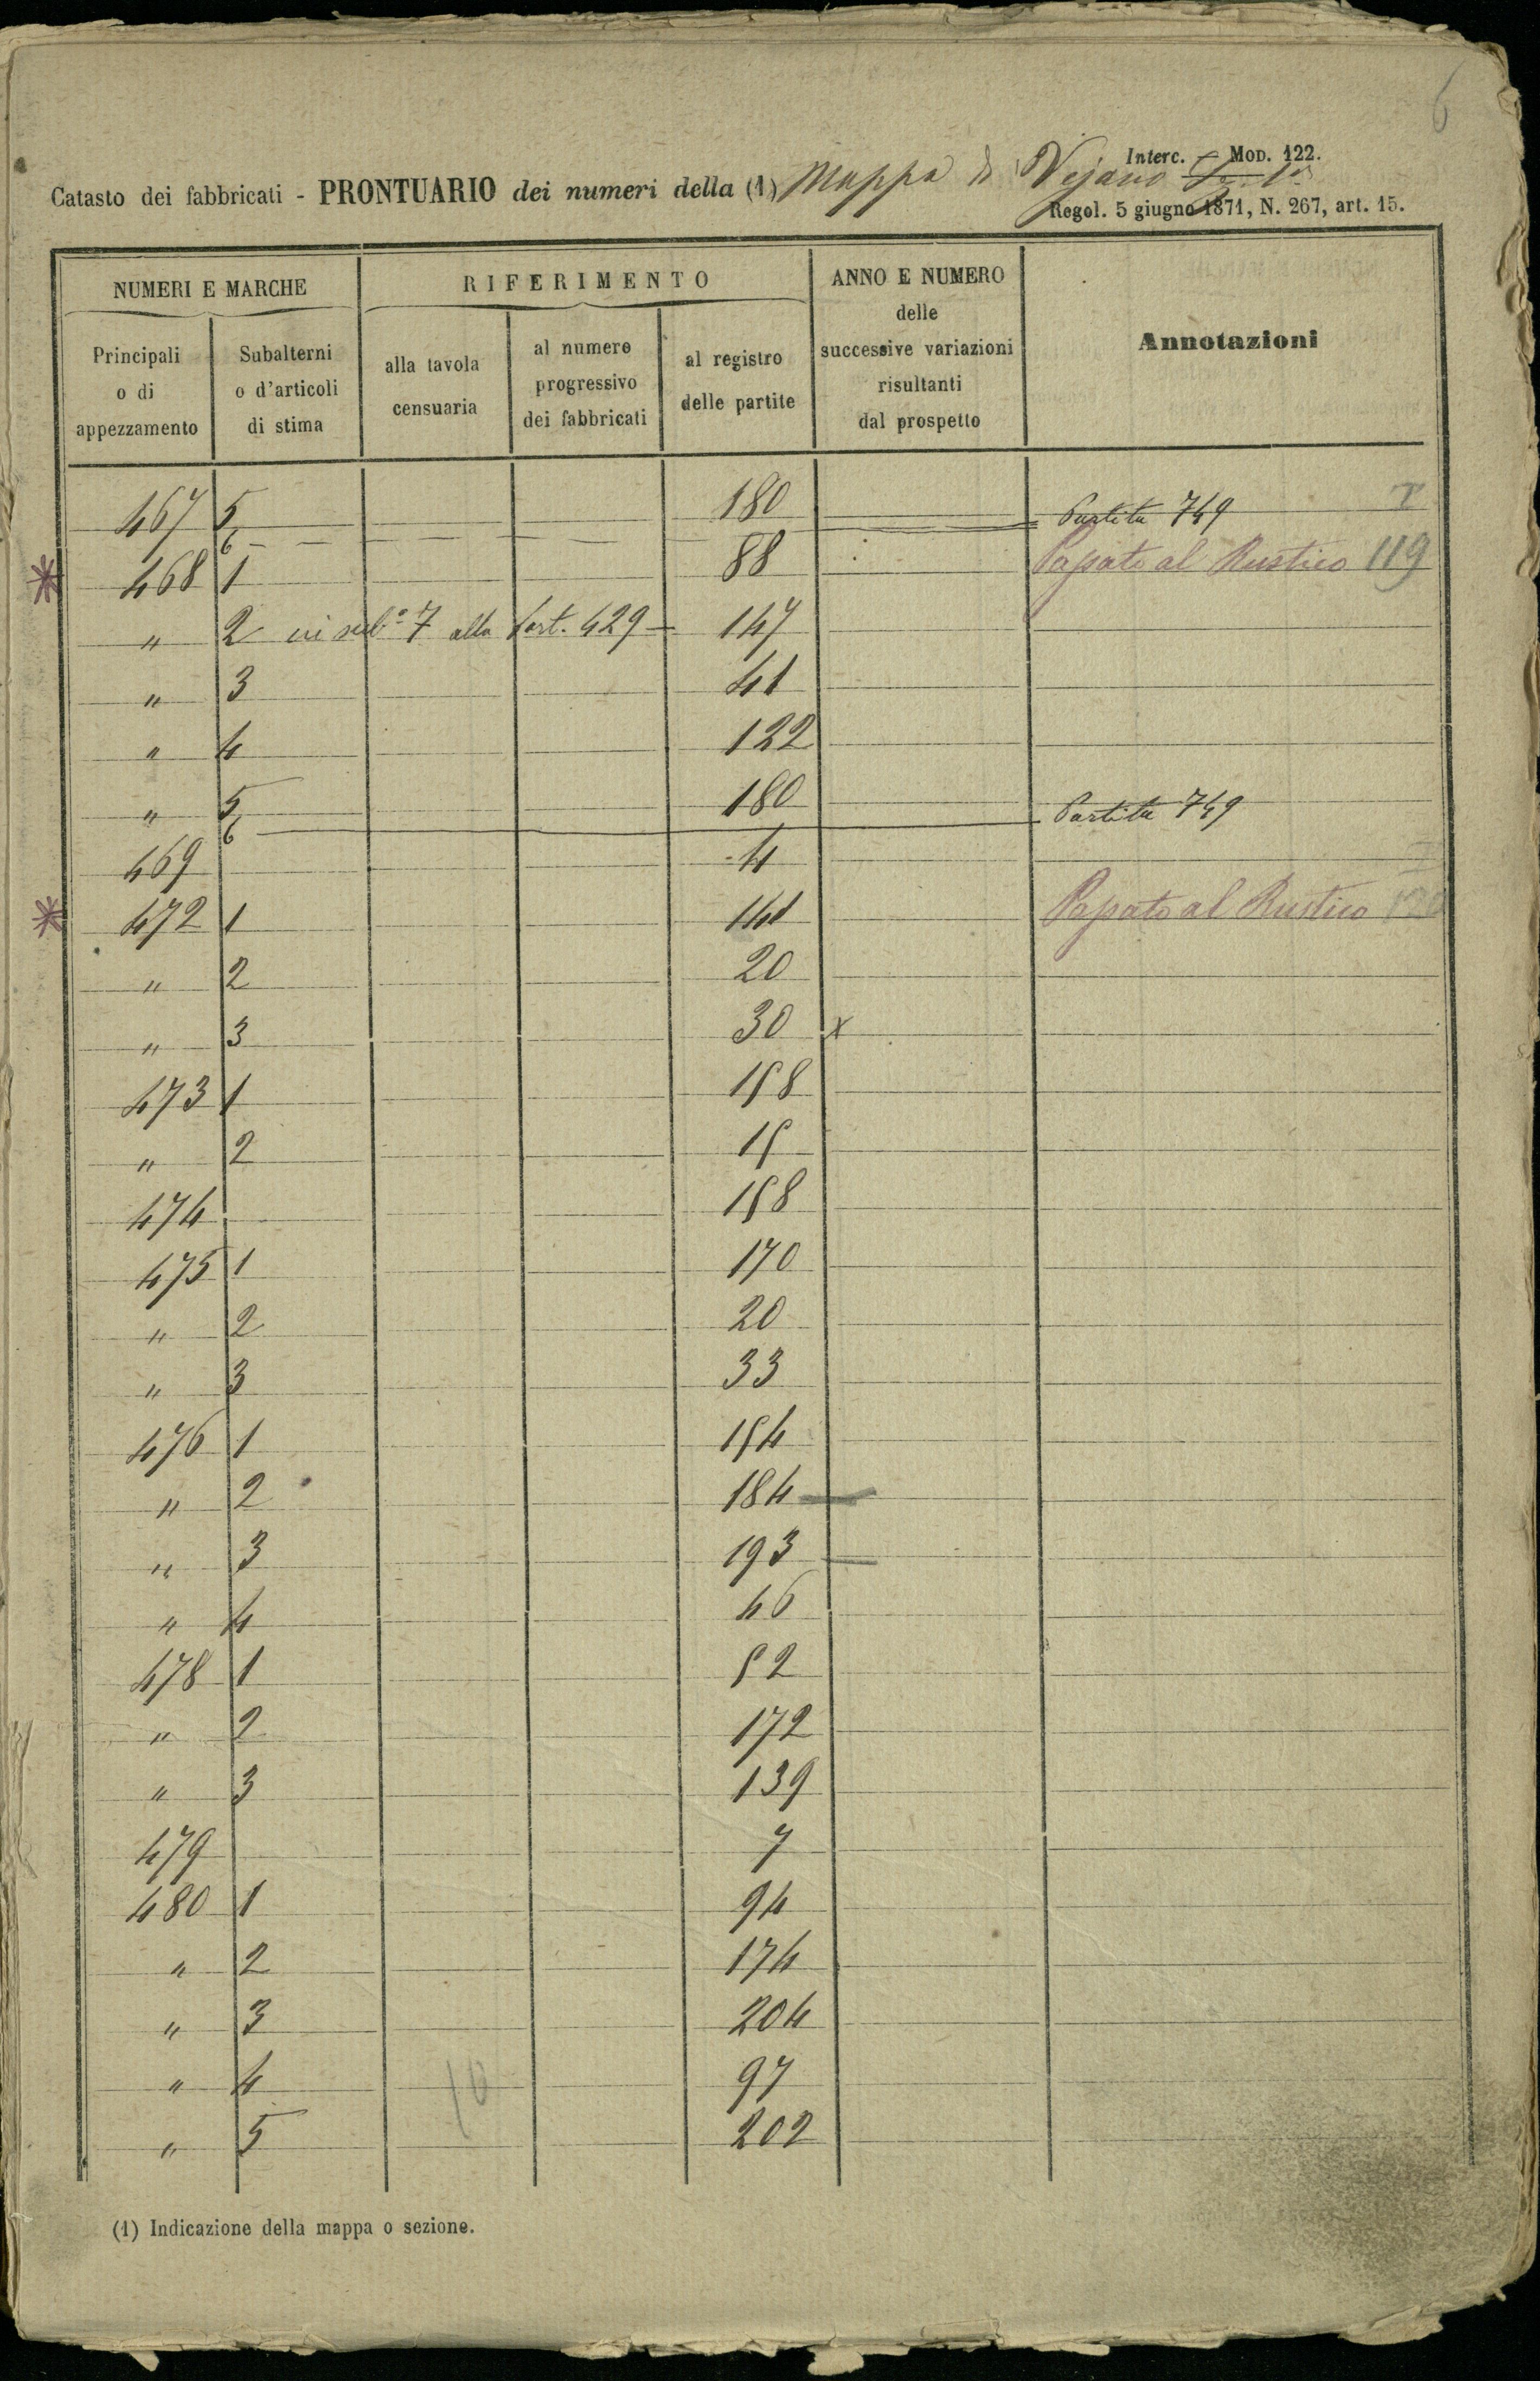 6
Interc. — MOD. 122.
Catasto dei fabbricati - PRONTUARIO dei numeri della (1) Mappa di Vejano
Regol. 5 giugno 1871, N. 267, art. 15.
NUMERI E MARCHE RIFERIMENTO ANNO E NUMERO delle successive variazioni risultanti dal prospetto Annotazioni
Principali o di appezzamento Subalterni o d'articoli di stima alla tavola censuaria al numero progressivo dei fabbricati al registro delle partite
467 5 180 Partita 749 I
6
* 468 1 88 Passato al Rustico 119
" 2 sub.o 7 alla Part. 429 — 147
" 3 41
" 4 122
" 5 180 Partita 749
6
469 4
* 472 1 141 Passato al Rustico
" 2 20
" 3 30 x
473 1 158
" 2 15
474 158
475 1 170
" 2 20
" 3 33
476 1 154
" 2 184 —
" 3 193 —
" 4 46
478 1 52
" 2 172
" 3 139
479 7
480 1 94
" 2 174
" 3 204
" 4 97
10
" 5 202
(1) Indicazione della mappa o sezione.